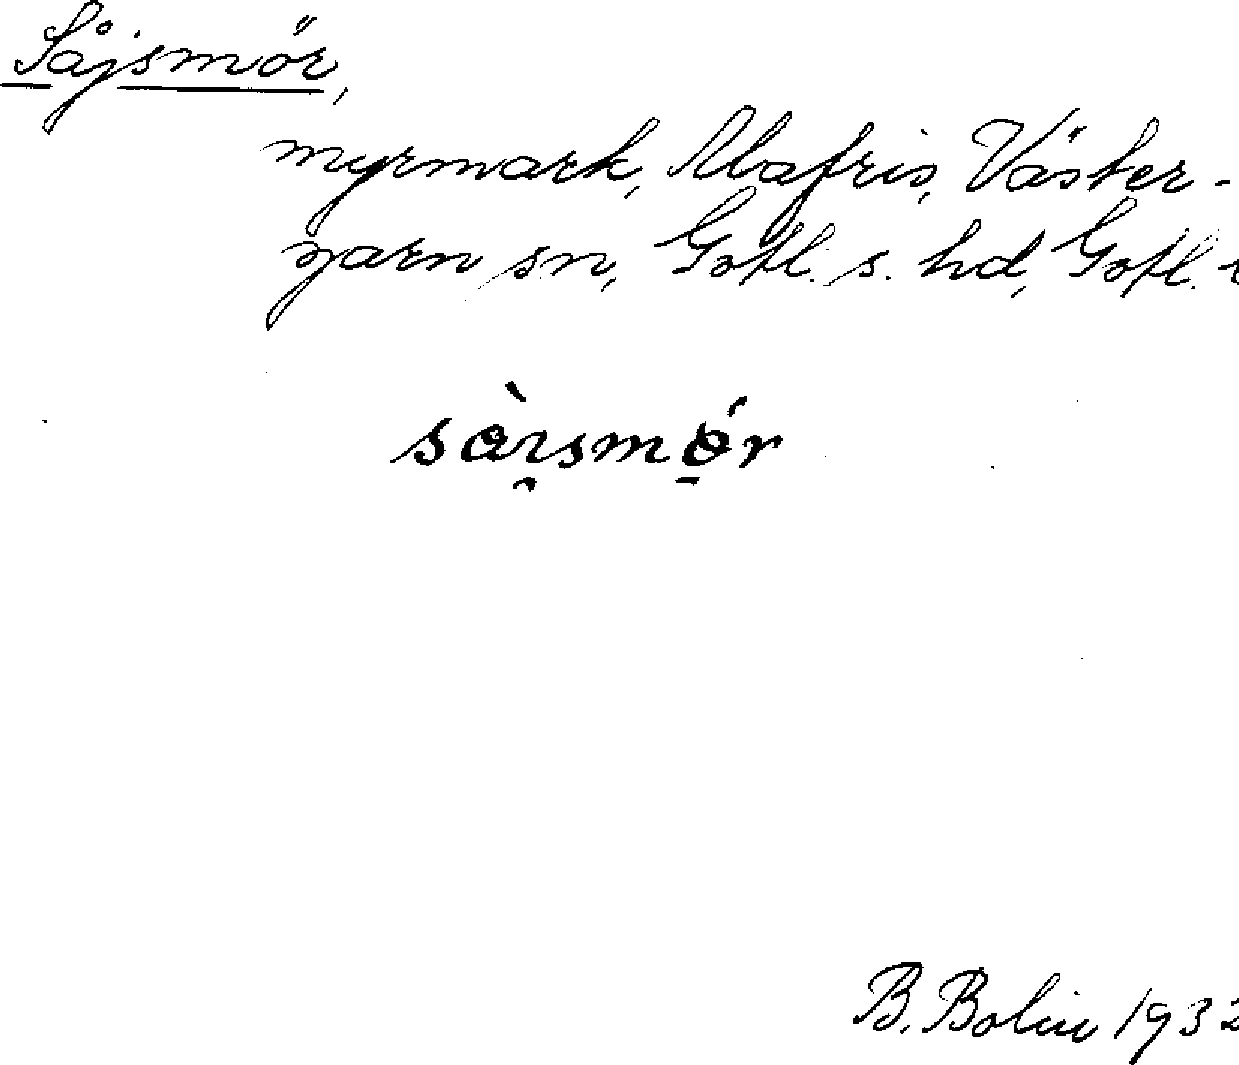 Såjsmör,
myrmark, Mafris, Väster-
garn sn, Gotl. s. hd, Gotl. l
B. Bolin 1932